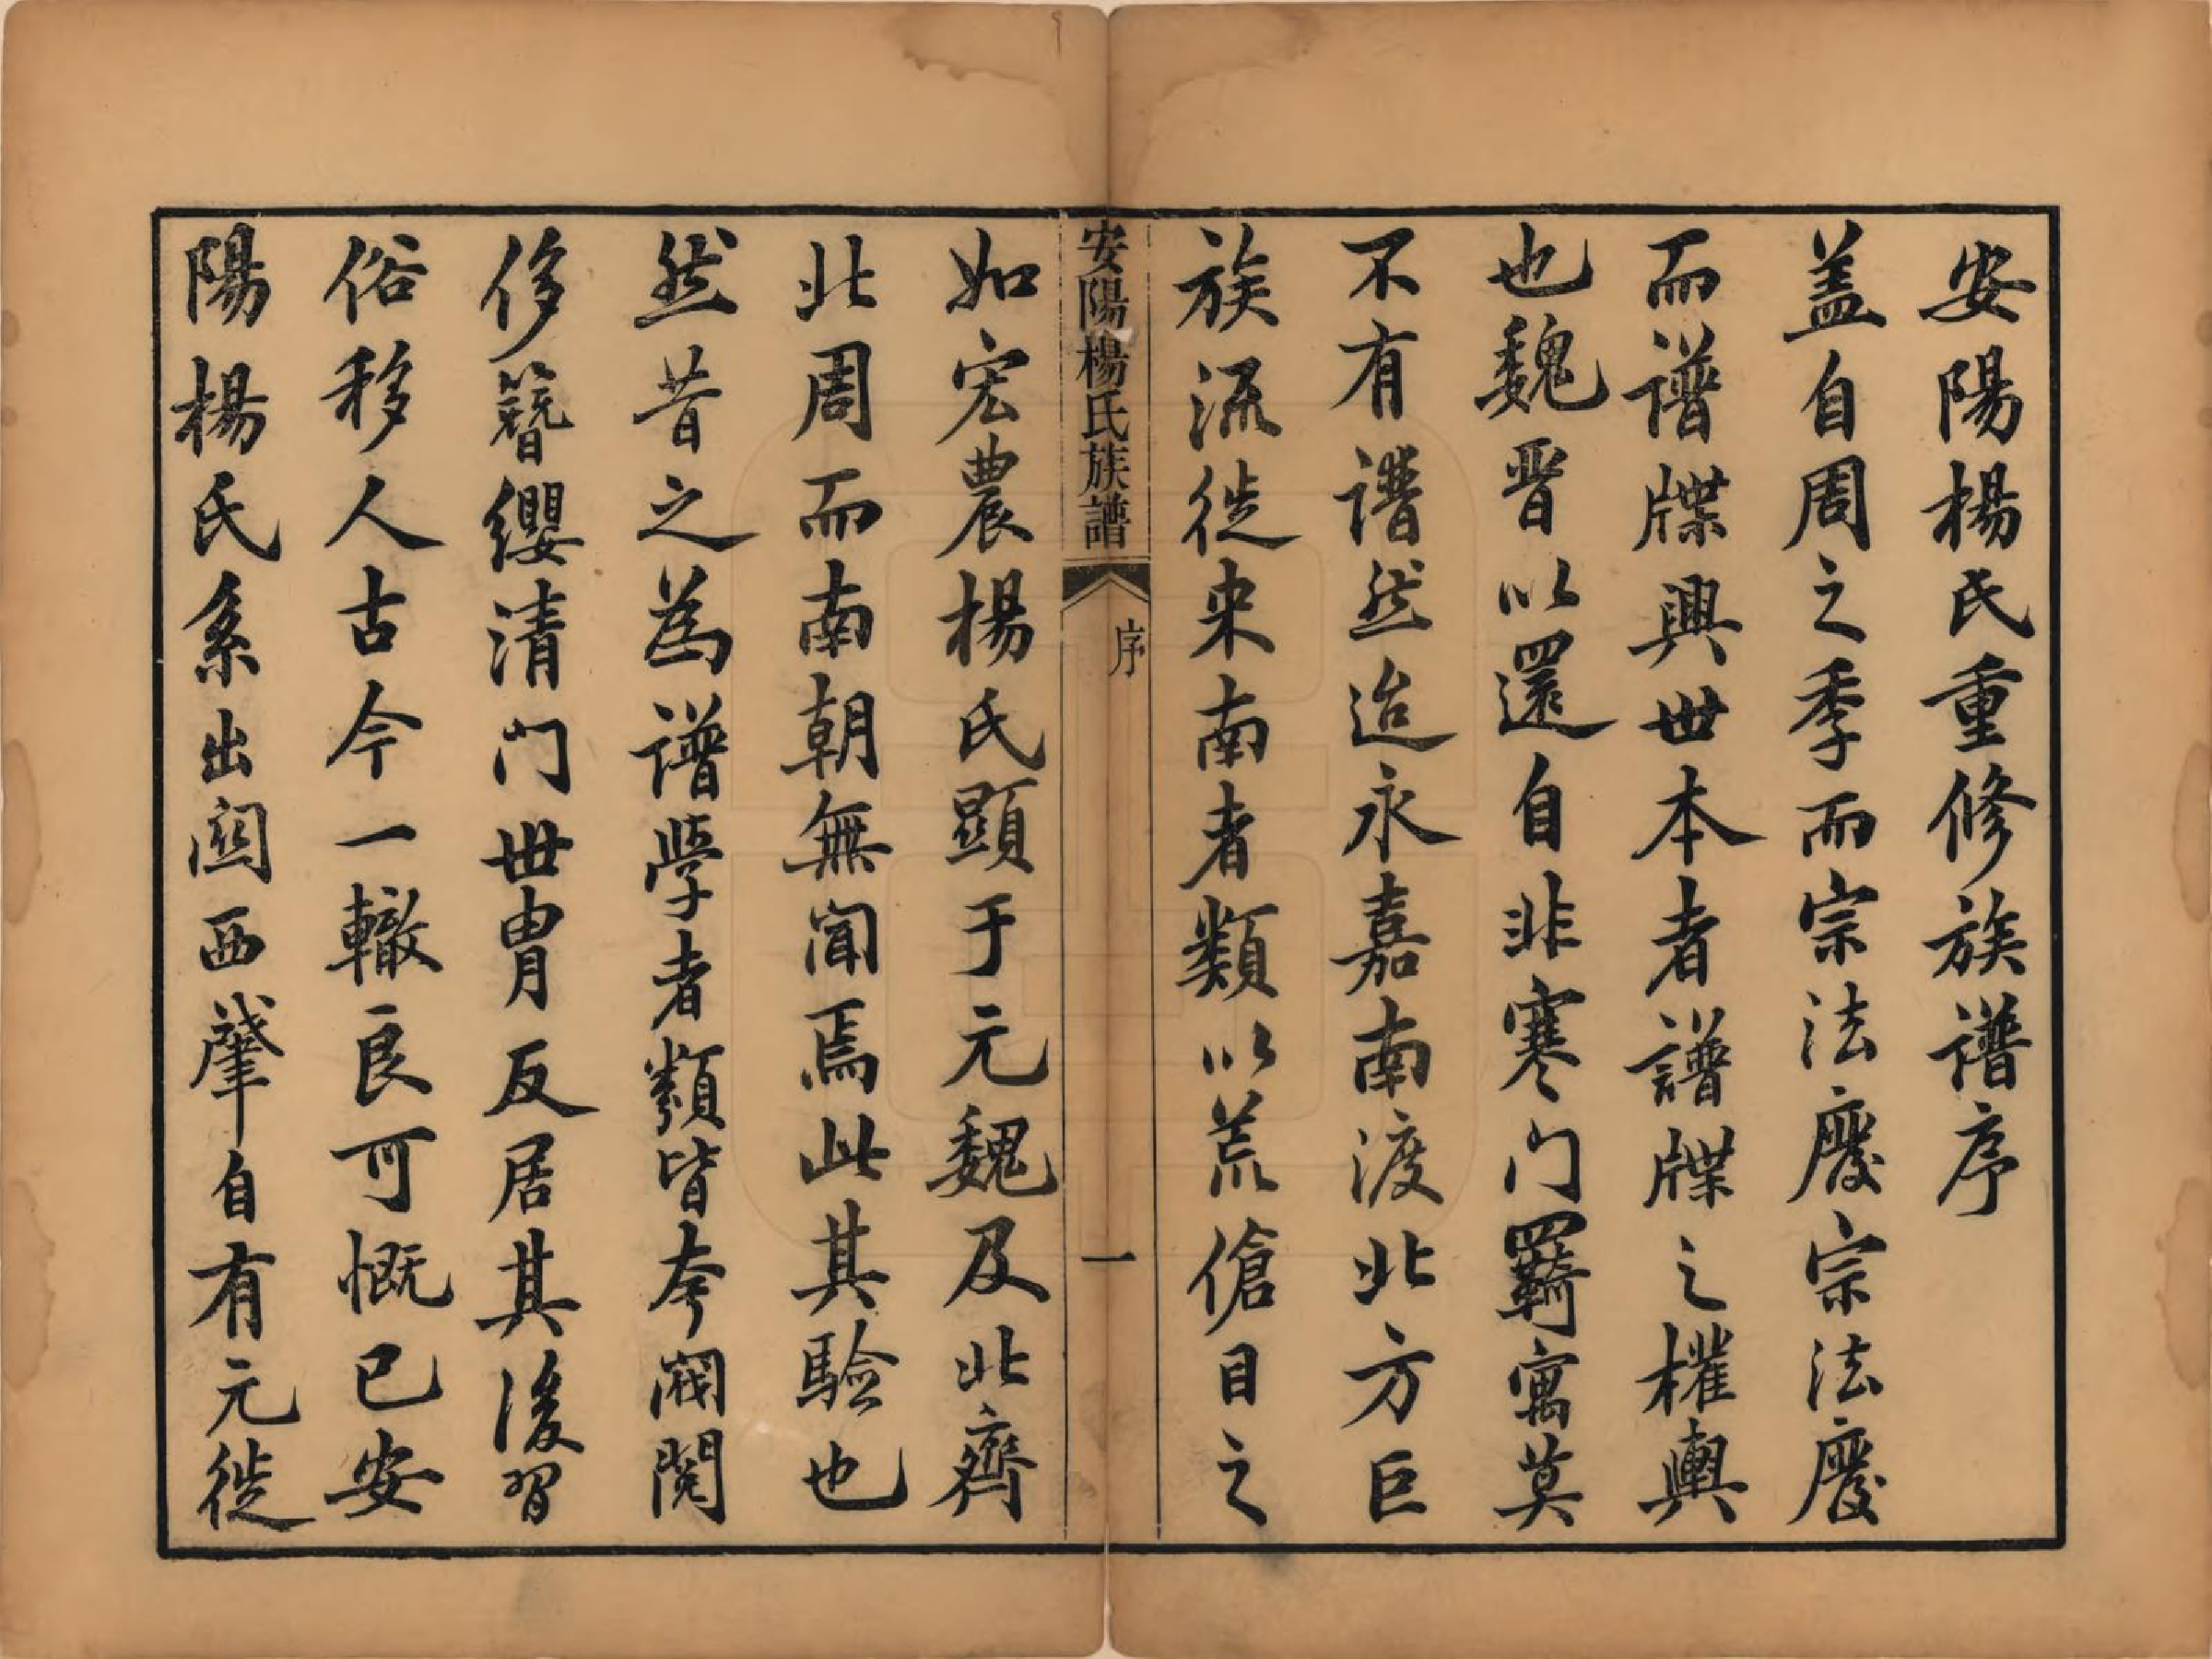 安陽楊氏重修族譜序
盖自周之季而宗法廢宗法廢
而譜牒興世本者譜牒之權輿
也魏晋以還自非寒门羇寓莫
不有譜然迨永嘉南渡北方巨
族流徙来南者類以荒傖目之
安陽楊氏族譜
序
一
如宏農楊氏顯于元魏及北齊
北周而南朝無聞焉此其驗也
然昔之為譜學者類皆夸閥閱
侈簪纓清门世胄反居其後習
俗移人古今一轍良可慨已安
陽楊氏系出関西肇自有元徙